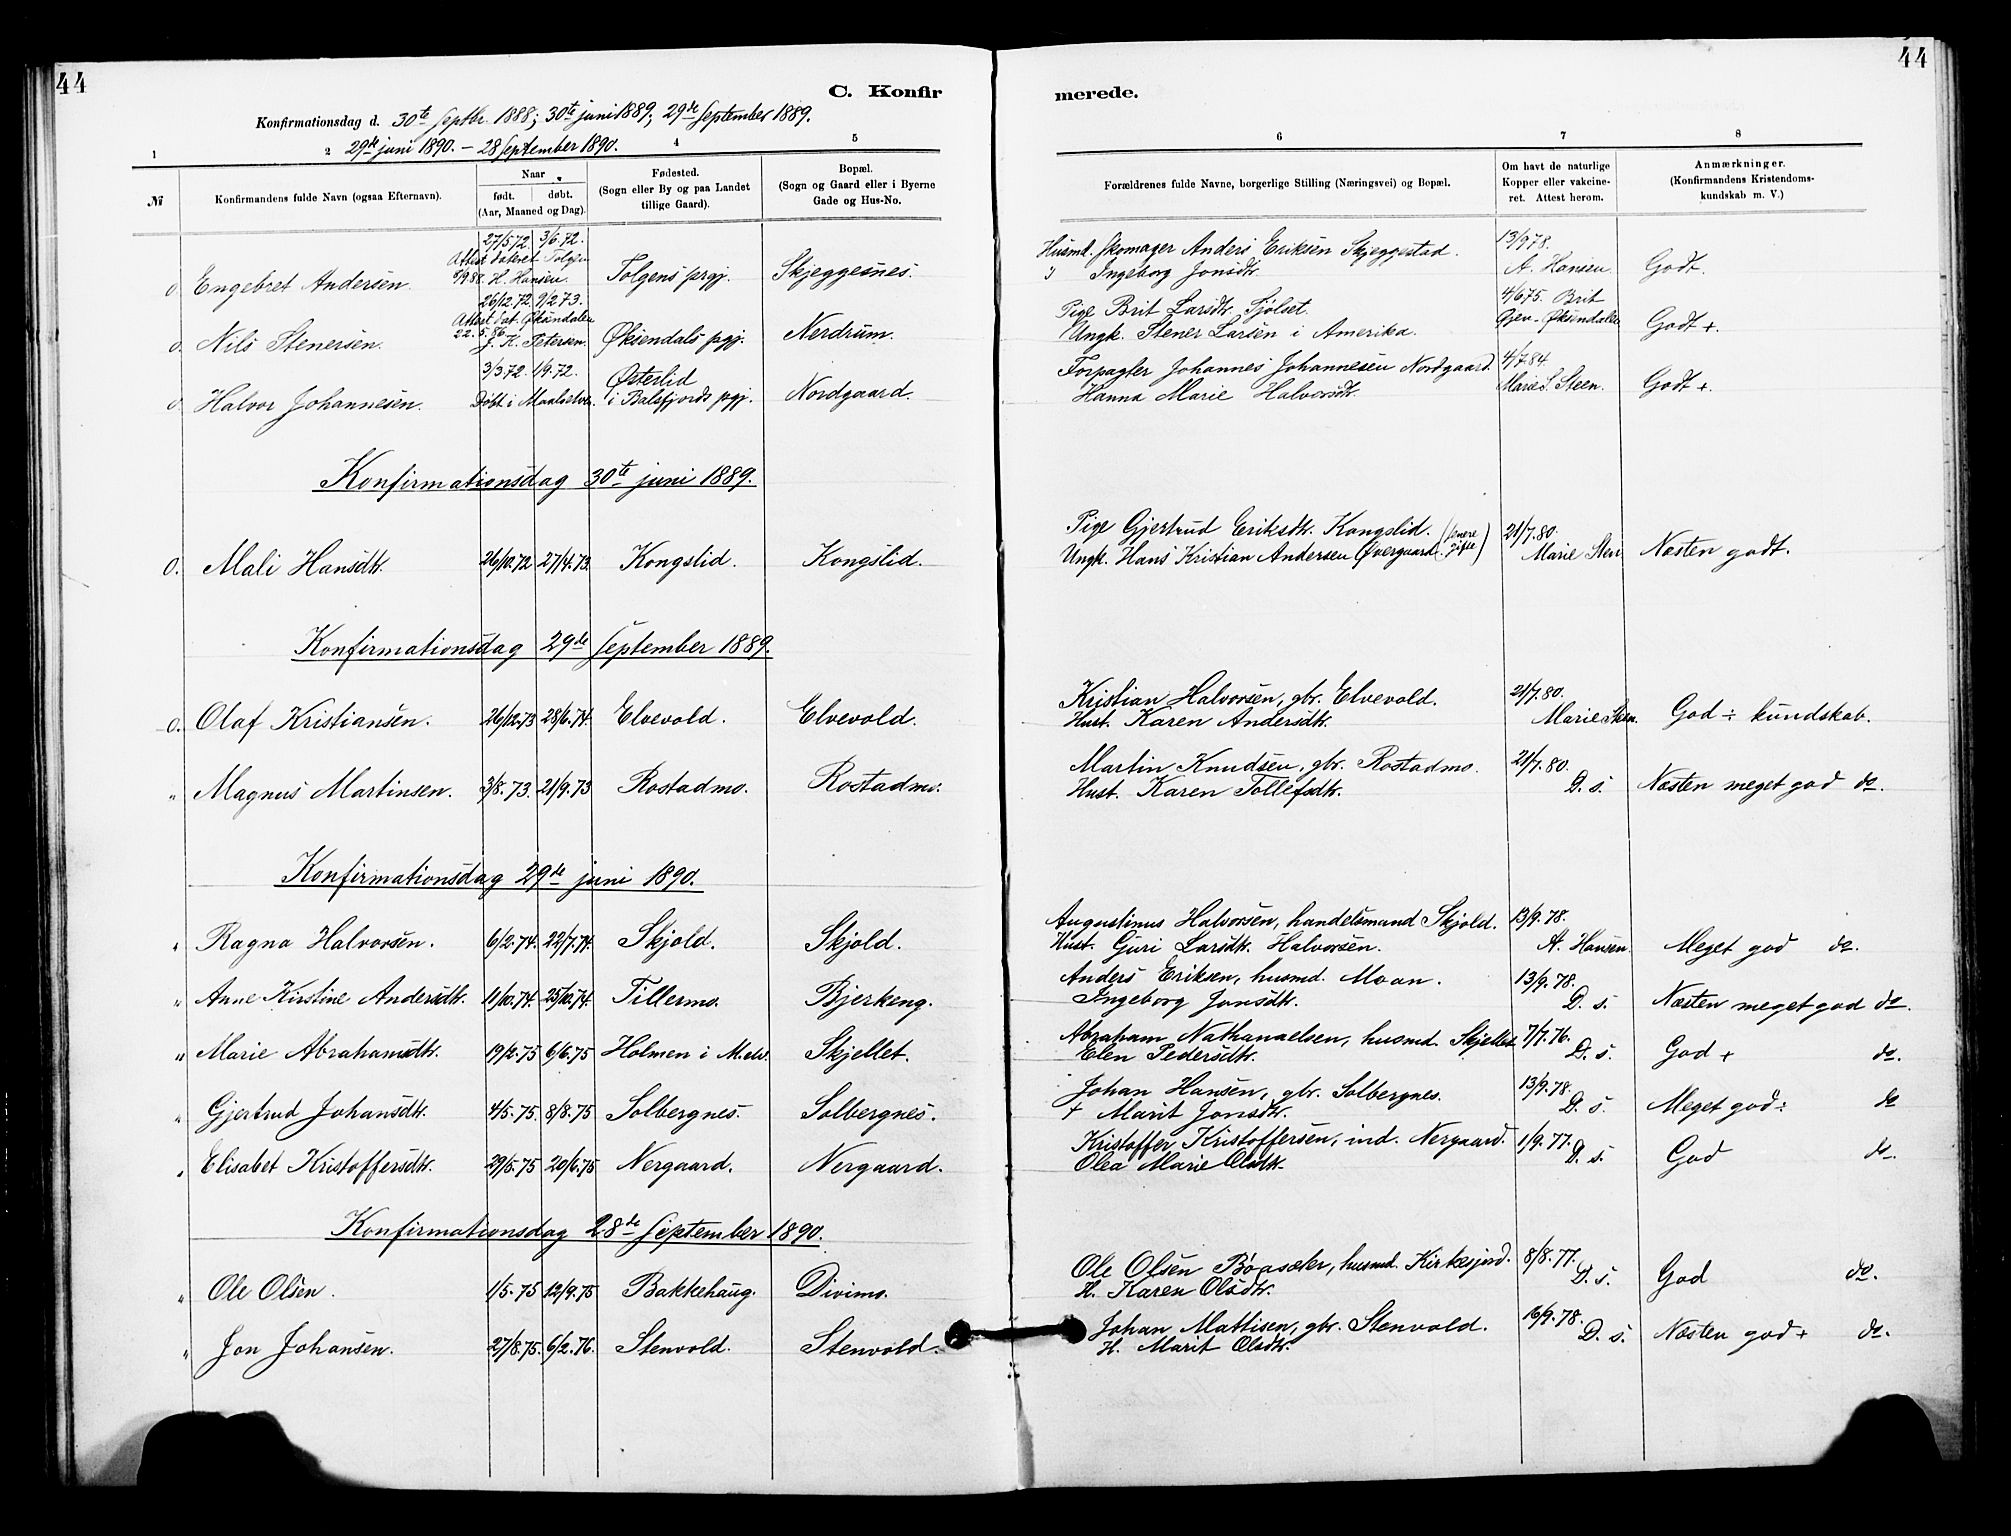 44
44
C. Konfir
merede.
Konfirmationsdag d. 30te Septbr. 1888; 30te juni 1889; 29de September 1889.
29de juni 1890. – 28 September 1890.
1 2 4 5 6 7 8
№ Konfirmandens fulde Navn (ogsaa Efternavn).
Naar
født. døbt.
(Aar, Maaned og Dag).
Fødested.
(Sogn eller By og paa Landet
tillige Gaard).
Bopæl.
(Sogn og Gaard eller i Byerne
Gade og Hus-No.
Forældrenes fulde Navne, borgerlige Stilling (Næringsvei) og Bopæl.
Om havt de naturlige
Kopper eller vakcine-
ret. Attest herom.
Anmærkninger.
(Konfirmandens Kristendoms-
kundskab m. V.)
27/5.72. 3/6.72. Husmd. Skomager Anders Eriksen Skjeggestad. 13/9 78.
Attest dateret Tolgen
Engebret Andersen. 5/9 88. H. Hansen. Tolgens prgj. Skjeggesnes. Ingeborg Jonsdtr. A. Hansen Godt.
26/12.72. 9/2 73. Pige Brit Larsdtr. Sjølset. 4/6 75. Brit
Attest dat. Øksendalen
22.5.86
Nils Stenersen. J. K. Petersen. Øksendals pgj. Nerdrum. Ungk. Stener Larsen i Amerika. Øksendalen Godt +.
3/3 72. 1/9.72. Østerlid Forpagter Johannes Johannesen Nordgaard. 4/7 84.
Halvor Johannesen. Døbt i Maalselven. i Balsfjords pgj. Nordgaard. Hanna Marie Halvorsdtr. Marie S. Steen. Godt +.
Konfirmationsdag 30te juni 1889.
Pige Gjertrud Eriksdtr. Kongslid. (senere gifte) 21/7.80.
O. Mali Hansdtr. 26/10.72 27/4.73 Kongslid. Kongslid. Ungk. Hans Kristian Andersen Øvergaard. Marie Sten Næsten godt.
Konfirmationsdag 29de September 1889.
Kristian Halvorsen, gbr. Elvevold. 21/7.80.
O. Olaf Kristiansen. 26/12.73 28/6.74. Elvevold. Elvevold. Hust. Karen Andersdtr. Marie Steen. God ÷ kundskab.
Martin Knudsen, gbr. Rostadmo. 21/7.80.
" Magnus Martinsen. 3/8.73. 21/9.73 Rostadmo. Rostadmo. Hust. Karen Tollefsdtr. D. s. Næsten meget god do.
Konfirmationsdag 29de juni 1890.
Augustinus Halvorsen, handelsmand Skjold. 13/9.78.
" Ragna Halvorsen. 6/2.74. 22/7.74. Skjold. Skjold. Hust. Guri Larsdtr. Halvorsen. A. Hansen. Meget god do.
Anders Eriksen, husmd. Moan. 13/9.78.
" Anne Kirstine Andersdtr. 11/10.74. 25/10.74. Tillermo. Bjerkeng. Ingeborg Jonsdtr. D. s. Næsten meget god do.
Abraham Nathanaelsen, husmd. Skjellet 7/7.76.
" Marie Abrahamsdtr. 19/2.75 6/6.75 Holmen i M.elv. Skjellet. Elen Pedersdtr. D. s. God + do.
Johan Hansen, gbr. Solbergnes. 13/9.78.
" Gjertrud Johansdtr. 4/5.75. 8/8.75 Solbergnes. Solbergnes. + Marit Jonsdtr. D. s. Meget god ÷ do
Kristoffer Kristoffersen, ind. Nergaard. 1/9.77.
" Elisabet Kristoffersdtr. 29/5.75 20/6.75 Nergaard. Nergaard. Olea Marie Olsdtr. D. s. God do.
Konfirmationsdag 28de September 1890.
Ole Olsen husmd. Kirkesjord. 8/8.77.
" Ole Olsen. 1/5.75 12/9.75 Bakkehaug. Divimo. H. Karen Olsdtr. D. s. God do.
Johan Mattisen, gbr. Stenvold. 16/9.78.
" Jon Johansen. 27/8.75. 6/2.76. Stenvold. Stenvold. H. Marit Olsdtr. D. s. Næsten god + do.